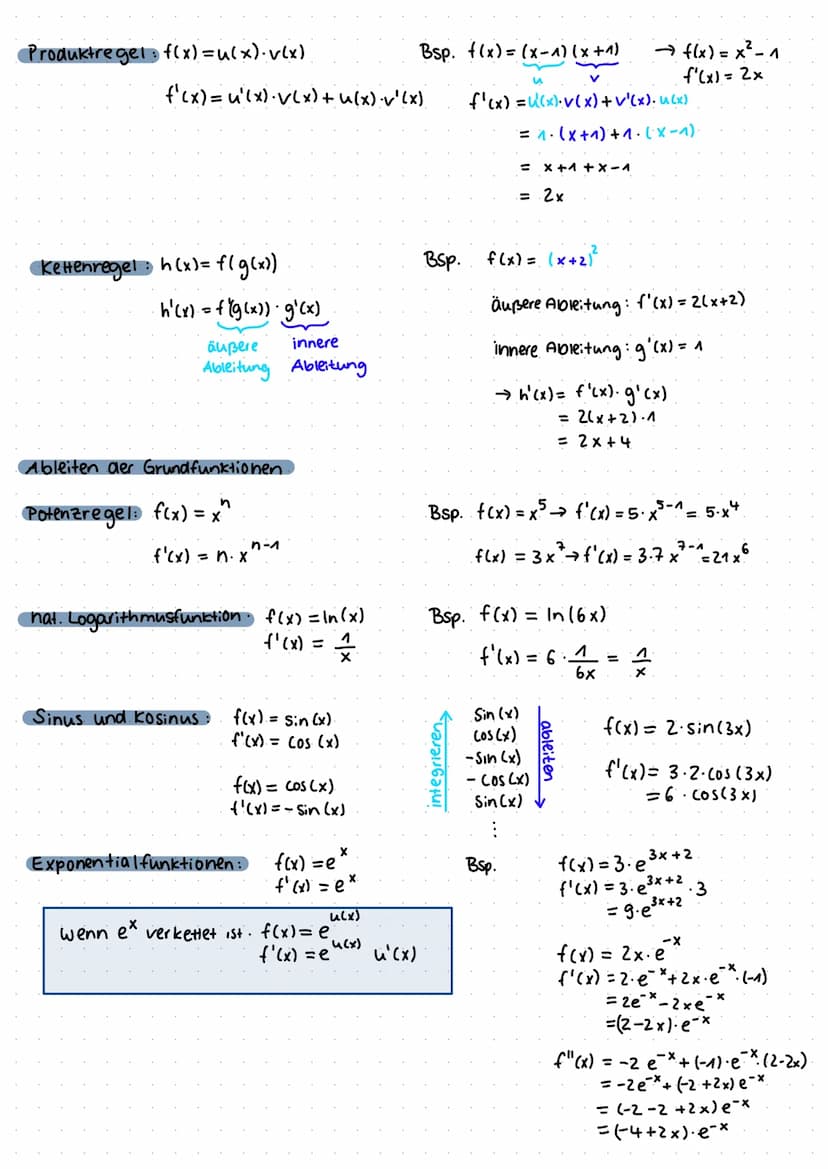 Produktregel: f(x) = u(x)·v(x)
f'(x) = u'(x)·v(x) + u(x)·v'(x)
Bsp. f(x) = (x-1)(x+1) → f(x) = x² - 1
u v f'(x) = 2x
f'(x) = u'(x)·v(x) + v'(x)·u(x)
= 1·(x+1) + 1·(x-1)
= x+1+x-1
= 2x
Kettenregel: h(x) = f(g(x))
h'(x) = f'(g(x))·g'(x)
äußere innere
Ableitung Ableitung
Bsp. f(x) = (x+2)²
äußere Ableitung: f'(x) = 2(x+2)
innere Ableitung: g'(x) = 1
→ h'(x) = f'(x)·g'(x)
= 2(x+2)·1
= 2x+4
Ableiten der Grundfunktionen
Potenzregel: f(x) = xⁿ
f'(x) = n·xⁿ⁻¹
Bsp. f(x) = x⁵ → f'(x) = 5·x⁵⁻¹ = 5·x⁴
f(x) = 3x⁷ → f'(x) = 3·7x⁷⁻¹ = 21x⁶
nat. Logarithmusfunktion: f(x) = ln(x)
f'(x) = 1/x
Bsp. f(x) = ln(6x)
f'(x) = 6·1/6x = 1/x
Sinus und Kosinus: f(x) = sin(x)
f'(x) = cos(x)
f(x) = cos(x)
f'(x) = -sin(x)
integrieren
sin(x)
cos(x)
-sin(x)
-cos(x)
sin(x)
⋮
ableiten
f(x) = 2·sin(3x)
f'(x) = 3·2·cos(3x)
= 6·cos(3x)
Exponentialfunktionen: f(x) = eˣ
f'(x) = eˣ
wenn eˣ verkettet ist. f(x) = e^u(x)
f'(x) = e^u(x) u'(x)
Bsp. f(x) = 3·e^3x+2
f'(x) = 3·e^3x+2·3
= 9·e^3x+2
f(x) = 2x·e^-x
f'(x) = 2·e^-x + 2x·e^-x·(-1)
= 2e^-x - 2xe^-x
= (2-2x)·e^-x
f''(x) = -2 e^-x + (-1)·e^-x·(2-2x)
= -2e^-x + (-2+2x)e^-x
= (-2-2+2x)e^-x
= (-4+2x)·e^-x